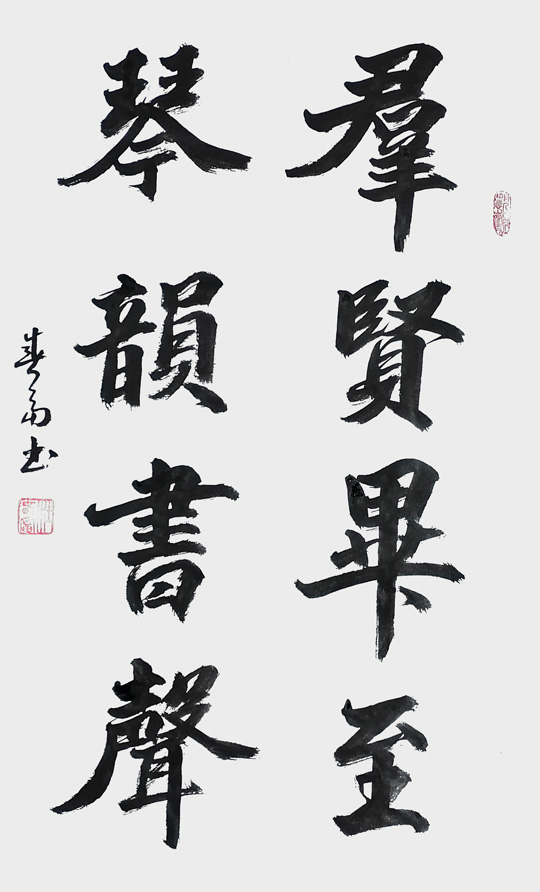 羣賢畢至
琴韻書聲